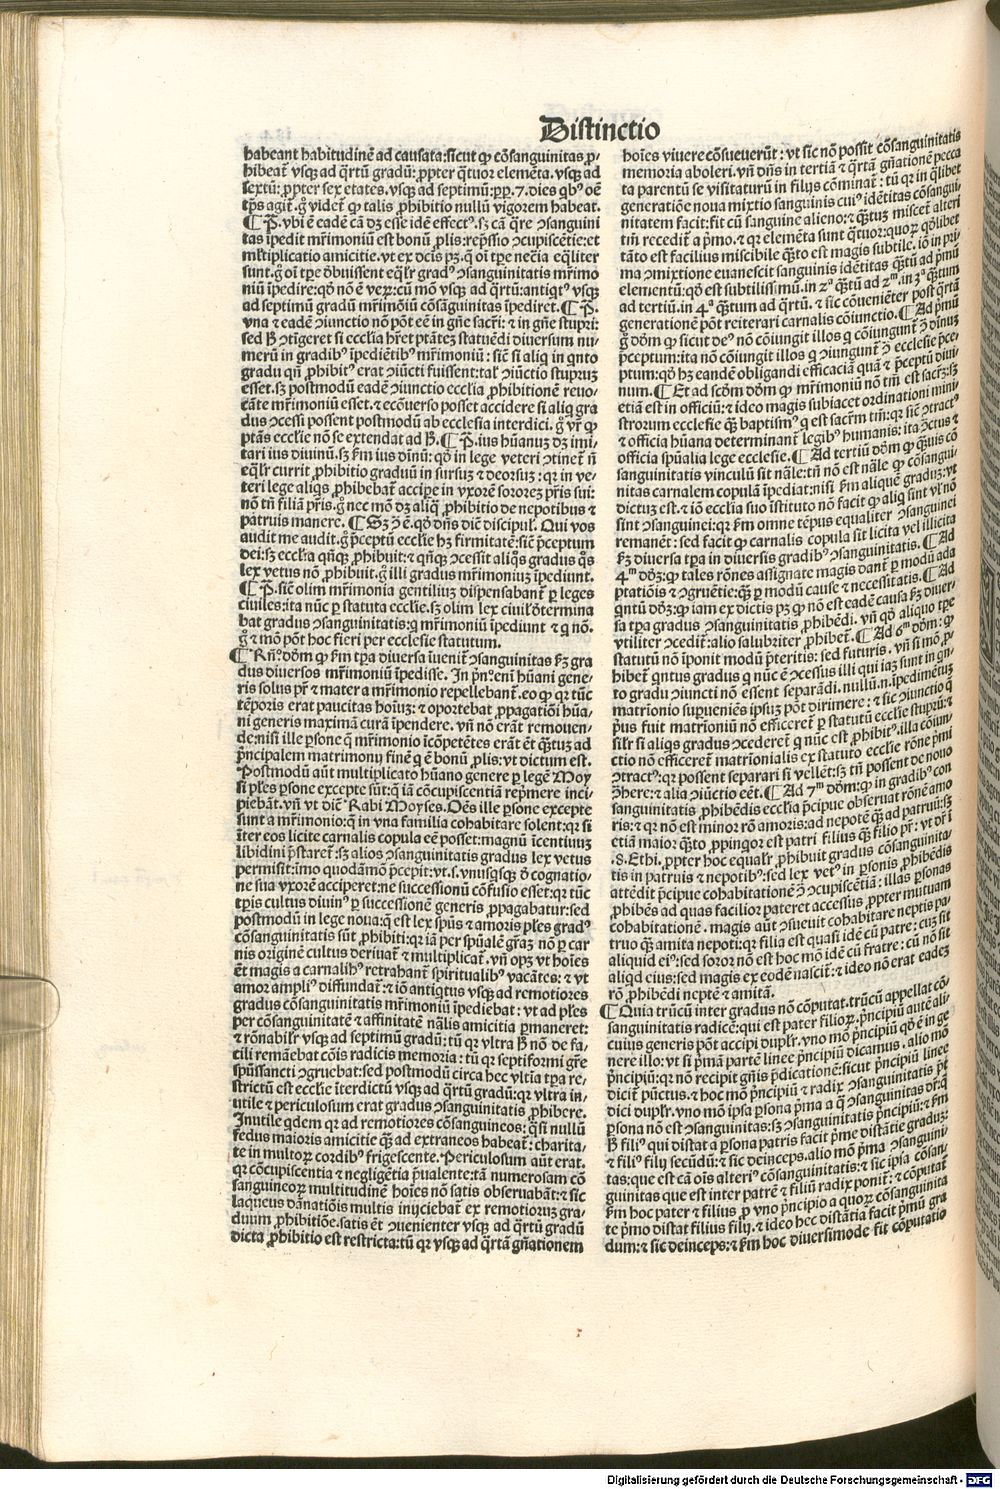 Distinctio
habeant habitudinē ad causata: sicut ꝙ cōsanguinitas ꝓ-
hibeat᷒ vsqꝫ ad q̄rtū gradū: ꝓpter q̄tuor elemēta. vsqꝫ ad
sextū: ꝓpter sex etates. vsqꝫ ad septimū: ꝓp. 7. dies qbꝰ oē
tp̄s agit᷒. ḡ videt᷒ ꝙ talis ꝓhibitio nullū vigorem habeat.
¶ P̄. vbi ē eadē cā dꝫ esse idē effectꝰ. sꝫ cā q̄re ꝯsanguini
tas īpedit mr̄imoniū est bonū ꝓlis: rep̄ssio ꝯcupiscētie: et
mltiplicatio amicitie. vt ex dcīs pꝫ. q̄ oī tp̄e nec̄ia eq̄liter
sunt. ḡ oī tp̄e d̄buissent eq̄lr̄ gradꝰ ꝯsanguinitatis mr̄imo
niū īpedire: qd̄ nō ē veꝝ: cū mō vsqꝫ ad q̄rtū: antiqt᷒ꝰ vsqꝫ
ad septimū gradū mr̄imōiū cōsāguinitas īpediret. ¶ P̄.
vna ⁊ eadē ꝯiunctio nō pōt eē in gn̄e sacrī: ⁊ in gn̄e stupri:
sed ꝩ ꝯtigeret si ecclīa hr̄et ptātēꝫ statuēdi diuersum nu-
merū in gradibꝰ īpediētibꝰ mr̄imoniū: sic̄ si aliq̄ in qnto
gradu qn̄ ꝓhibitꝰ erat ꝯiūcti fuissent: tal̓ ꝯiūctio stupruꝫ
esset. sꝫ postmodū eadē ꝯiunctio ecclīa ꝓhibitionē reuo-
cāte mr̄imoniū esset. ⁊ ecōuerso posset accidere si aliq̄ gra
dus ꝯcessi possent postmodū ab ecclesia interdici. ḡ vr̄ ꝙ
ptās ecclīe nō se extendat ad ꝩ. ¶ P̄. ius hūanuꝫ dꝫ imi-
tari ius diuinū. sꝫ ẜm ius dīnū: qd̄ in lege veteri ꝯtinet᷒ n̄
eq̄lr̄ currit ꝓhibitio graduū in sursuꝫ ⁊ deorsuꝫ: qr in ve-
teri lege aliqs ꝓhibebat᷒ accipe in vxorē sororeꝫ pr̄is sui:
nō tn̄ filiā pr̄is. ḡ nec mō dꝫ aliq̄ ꝓhibitio de nepotibus ⁊
patruis manere. ¶ Sꝫ ꝯ̄ ē. qd̄ dn̄s diē discipul̓. Qui vos
audit me audit. ḡ p̄ceptū ecclīe hꝫ firmitatē: sic̄ p̄ceptum
dei: sꝫ ecclīa qn̄qꝫ ꝓhibuit: ⁊ qn̄qꝫ ꝯcessit aliq̄s gradus q̄s
lex vetus nō ꝓhibuit. ḡ illi gradus mr̄imoniuꝫ īpediunt.
¶ P̄. sic̄ olim mr̄imonia gentiliuꝫ dispensabant᷒ ꝑ leges
ciuiles: ita nūc ꝑ statuta ecclīe. sꝫ olim lex ciuil̓ determina
bat gradus ꝯsanguinitatis: q̄ mr̄imoniū īpediunt ⁊ q̄ nō.
ḡ ⁊ mō pōt hoc fieri per ecclesie statutum.
¶ Rn̄. d̄dm ꝙ ẜm tp̄a diuersa īuenit᷒ ꝯsanguinitas ẜꝫ gra
dus diuersos mr̄imoniū īpedisse. In p̄n° enī hūani gene-
ris solus pr̄ ⁊ mater a mr̄imonio repellebant᷒. eo ꝙ qr tūc
tēporis erat paucitas hoīuꝫ: ⁊ oportebat ꝓpagatiōi hūa-
ni generis maximā curā īpendere. vn̄ nō erāt remouen-
de: nisi ille ꝑsone q̄ mr̄imonio īcōpetētes erāt ēt q̄ꝫtuꝫ ad
p̄ncipalem matrimony finē q̄ ē bonū ꝓlis: vt dictum est.
Postmodū aūt multiplicato hūano genere ꝑ legē Moy
si pl̓es ꝑsone excepte sūt: q̄ iā cōcupiscentiā rep̄mere inci-
piebāt. vn̄ vt diē Rabi Moyses. Oēs ille ꝑsone excepte
sunt a mr̄imonio: q̄ in vna familia cohabitare solent: qr si
īter eos licite carnalis copula eē posset: magnū īcentiuuꝫ
libidini p̄staret: sꝫ alios ꝯsanguinitatis gradus lex vetus
permisit: imo quodāmō p̄cepit: vt. s. vnusqsqꝫ d̄ cognatio-
ne sua vxorē acciperet: ne successionū cōfusio esset: qr tūc
tp̄is cultus diuinꝰ ꝑ successionē generis ꝓpagabatur: sed
postmodū in lege noua: q̄ est lex spūs ⁊ amoris pl̓es gradꝰ
cōsanguinitatis sūt ꝓhibiti: qr iā per spūalē gr̄aꝫ nō ꝑ car
nis originē cultus deriuat᷒ ⁊ multiplicat᷒. vn̄ opꝫ vt hoīes
ēt magis a carnalibꝰ retrahant᷒ spiritualibꝰ vacātes: ⁊ vt
amor ampliꝰ diffundat᷒: ⁊ iō antiqtus vsqꝫ ad remotiores
gradus cōsanguinitatis mr̄imoniū īpediebat᷒: vt ad pl̓es
per cōsanguinitatē ⁊ affinitatē nāl̓is amicitia ꝑmaneret:
⁊ rōnabilr̄ vsqꝫ ad septimū gradū: tū qr vltra ꝩ nō de fa-
cili remāebat cōis radicis memoria: tū qr septiformi gr̄e
spūssancti ꝯgruebat: sed postmodū circa hec vltīa tp̄a re-
strictū est ecclīe īterdictū vsqꝫ ad q̄rtū gradū: qr vltra in-
utile ⁊ periculosum erat gradus ꝯsanguinitatis ꝓhibere.
Inutile qdem qr ad remotiores cōsanguineos: q̄si nullū
fedus maioris amicitie q̄ꝫ ad extraneos habeat᷒: charita-
te in multoꝝ cordibꝰ frigescente. Periculosum aūt erat.
qr cōcupiscentia ⁊ negligētia p̄ualente: tā numerosam cō
sanguineoꝝ multitudinē hoīes nō satis obseruabāt: ⁊ sic
laqueus dānatiōis multis iniyciebat᷒ ex remotioruꝫ gra-
duum ꝓhibitiōe. satis ēt ꝯuenienter vsqꝫ ad q̄rtū gradū
dicta ꝓhibitio est restricta: tū qr vsqꝫ ad q̄rtā gn̄ationem
hoīes viuere cōsueuerūt: vt sic nō possit cōsanguinitatis
memoria aboleri. vn̄ dn̄s in tertiā ⁊ q̄rtā gn̄ationē pecca
ta parentū se visitaturū in filys cōminat᷒: tū qr in q̄libet
generatiōe noua mixtio sanguinis cuiꝰ idētitas cōsangui
nitatem facit: fit cū sanguine alieno: ⁊ q̄ꝫtuꝫ miscet᷒ alteri
tm̄ recedit a p̄mo. ⁊ qr elemēta sunt q̄tuor: quoꝝ qd̄libet
tāto est facilius miscibile q̄ꝫto est magis subtile. iō in pri-
ma ꝯmixtione euanescit sanguinis idētitas q̄ꝫtū ad p̄mū
elementū: qd̄ est subtilissimū. in 2ª q̄ꝫtū ad 2ᵐ. in 3ª q̄ꝫtum
ad tertiū. in 4ª q̄ꝫtum ad q̄rtū. ⁊ sic cōueniēter post q̄rtā
generationē pōt reiterari carnalis cōiunctio. ¶ Ad p̄mū
ḡ d̄dm ꝙ sicut deꝰ nō cōiungit illos q̄ cōiungunt᷒ ꝯ̄ dīnuꝫ
p̄ceptum: ita nō cōiungit illos q̄ ꝯiungunt᷒ ꝯ̄ ecclesie p̄ce-
ptum: qd̄ hꝫ eandē obligandi efficaciā quā ⁊ p̄ceptū diui-
num. ¶ Et ad scd̄m d̄dm ꝙ mr̄imoniū nō tm̄ est sacr̄ꝫ: sꝫ
etiā est in officiū: ⁊ ideo magis subiacet ordinationi mini
strorum ecclesie q̄ꝫ baptismꝰ q̄ est sacr̄m tm̄: qr sic̄ ꝯtractꝰ
⁊ officia hūana determinant᷒ legibꝰ humanis: ita ꝯctus ⁊
officia spūalia lege ecclesie. ¶ Ad tertiū d̄dm ꝙ q̄ꝫuis cō
sanguinitatis vinculū sit nāle: tn̄ nō est nāle ꝙ cōsangui-
nitas carnalem copulā īpediat: nisi ẜm aliquē graduꝫ: vt
dictuꝫ est. ⁊ iō ecclīa suo īstituto nō facit ꝙ aliq̄ sint vl̓ nō
sint ꝯsanguinei: qr ẜm omne tēpus equaliter ꝯsanguinei
remanēt: sed facit ꝙ carnalis copula sit licita vel illicita
ẜꝫ diuersa tp̄a in diuersis gradibꝰ ꝯsanguinitatis. ¶ Ad
4ᵐ d̄dꝫ: ꝙ tales rōnes assignate magis dant᷒ ꝑ modū ada
ptatiōis ⁊ ꝯgruētie: q̄ꝫ ꝑ modū cause ⁊ necessitatis. ¶ Ad
qntū d̄dꝫ: ꝙ iam ex dictis pꝫ ꝙ nō est eadē causa ẜꝫ diuer-
sa tp̄a gradus ꝯsanguinitatis ꝓhibēdi. vn̄ qd̄ aliquo tp̄e
vtiliter ꝯcedit᷒: alio salubriter ꝓhibet᷒. ¶ Ad 6ᵐ d̄dm: ꝙ
statutū nō īponit modū p̄teritis: sed futuris. vn̄ si mō ꝓ-
hibet᷒ qntus gradus q̄ nūc ē ꝯcessus illi qui iaꝫ sunt in qn-
to gradu ꝯiuncti nō essent separādi. nullū. n. īpedimētuꝫ
matrīonio superueniēs ipsuꝫ pōt dirimere: ⁊ sic ꝯiunctio q̄
p̄us fuit matrīoniū nō efficeret᷒ ꝑ statutū ecclīe stuprū: ⁊
silr̄ si aliqs gradus ꝯcederet᷒ q̄ nūc est ꝓhibitꝰ. illa cōiun-
ctio nō efficeret᷒ matrīonialis ex statuto ecclīe rōne p̄mi
ꝯtractꝰ: qr possent separari si vellēt: sꝫ tn̄ possent de nouo
ꝯ̄here: ⁊ alia ꝯiūctio eēt. ¶ Ad 7ᵐ d̄dm: ꝙ in gradibꝰ con
sanguinitatis ꝓhibēdis ecclīa p̄cipue obseruat rōnē amo
ris: ⁊ qr nō est minor rō amoris: ad nepotē q̄ꝫ ad patruū: sꝫ
etiā maior q̄ꝫto ꝓpinqor est patri filius q̄ꝫ filio pr̄: vt dr̄ ī
. 8. Ethi. ꝓpter hoc equalr̄ ꝓhibuit gradꝰ cōsanguinita-
tis in patruis ⁊ nepotibꝰ: sed lex vetꝰ in ꝑsonis ꝓhibēdis
attēdit p̄cipue cohabitationē ꝯ̄ ꝯcupiscētiā: illas ꝑsonas
ꝓhibēs ad quas facilior pateret accessus, ꝓpter mutuam
cohabitationē. magis aūt ꝯsueuit cohabitare neptis pa-
truo q̄ꝫ amita nepoti: qr filia est quasi idē cū patre: cuꝫ sit
aliquid eiꝰ: sed soror nō est hoc mō idē cū fratre: cū nō sit
aliqd eius: sed magis ex eodē nascit᷒: ⁊ ideo nō erat eadeꝫ
rō ꝓhibēdi neptē ⁊ amitā.
¶ Quia trūcū inter gradus nō cōputat. trūcū appellat cō-
sanguinitatis radicē: qui est pater filioꝝ. p̄ncipiū aūt ali-
cuius generis pōt accipi duplr̄. vno mō p̄ncipiū qd̄ ē in ge
nere illo: vt si p̄mā partē linee p̄ncipiū dicamus. alio mō
p̄ncipiū: qr nō recipit gn̄is p̄dicationē: sicut p̄ncipiū linee
dicit᷒ pūctus. ⁊ hoc mō p̄ncipiū ⁊ radix ꝯsanguinitatis p̄t
dici duplr̄. vno mō ipsa ꝑsona p̄ma a q̄ ꝯsanguinitas dr̄: q̄
ꝑsona nō est ꝯsanguinitas: sꝫ ꝯsanguinitatis p̄ncipiū: ⁊ ẜm
ꝩ filiꝰ qui distat a ꝑsona patris facit p̄me distātie graduꝫ:
⁊ filiꝰ fily secūdū: ⁊ sic deinceps. alio mō p̄ma ꝯsanguini
tas: que est cā oīs alteriꝰ cōsanguinitatis: ⁊ sic ipsa cōsan-
guinitas que est inter patrē ⁊ filiū radix ponit᷒: ⁊ cōputat᷒
ẜm hoc pater ⁊ filius ꝑ vno p̄ncipio a quoꝝ cōsanguinita
te p̄mo distat filius fily. ⁊ ideo hec distātia facit p̄mū gra
dum: ⁊ sic deinceps: ⁊ ẜm hoc diuersimode fit cōputatio
Digitalisierung gefördert durch die Deutsche Forschungsgemeinschaft - DFG